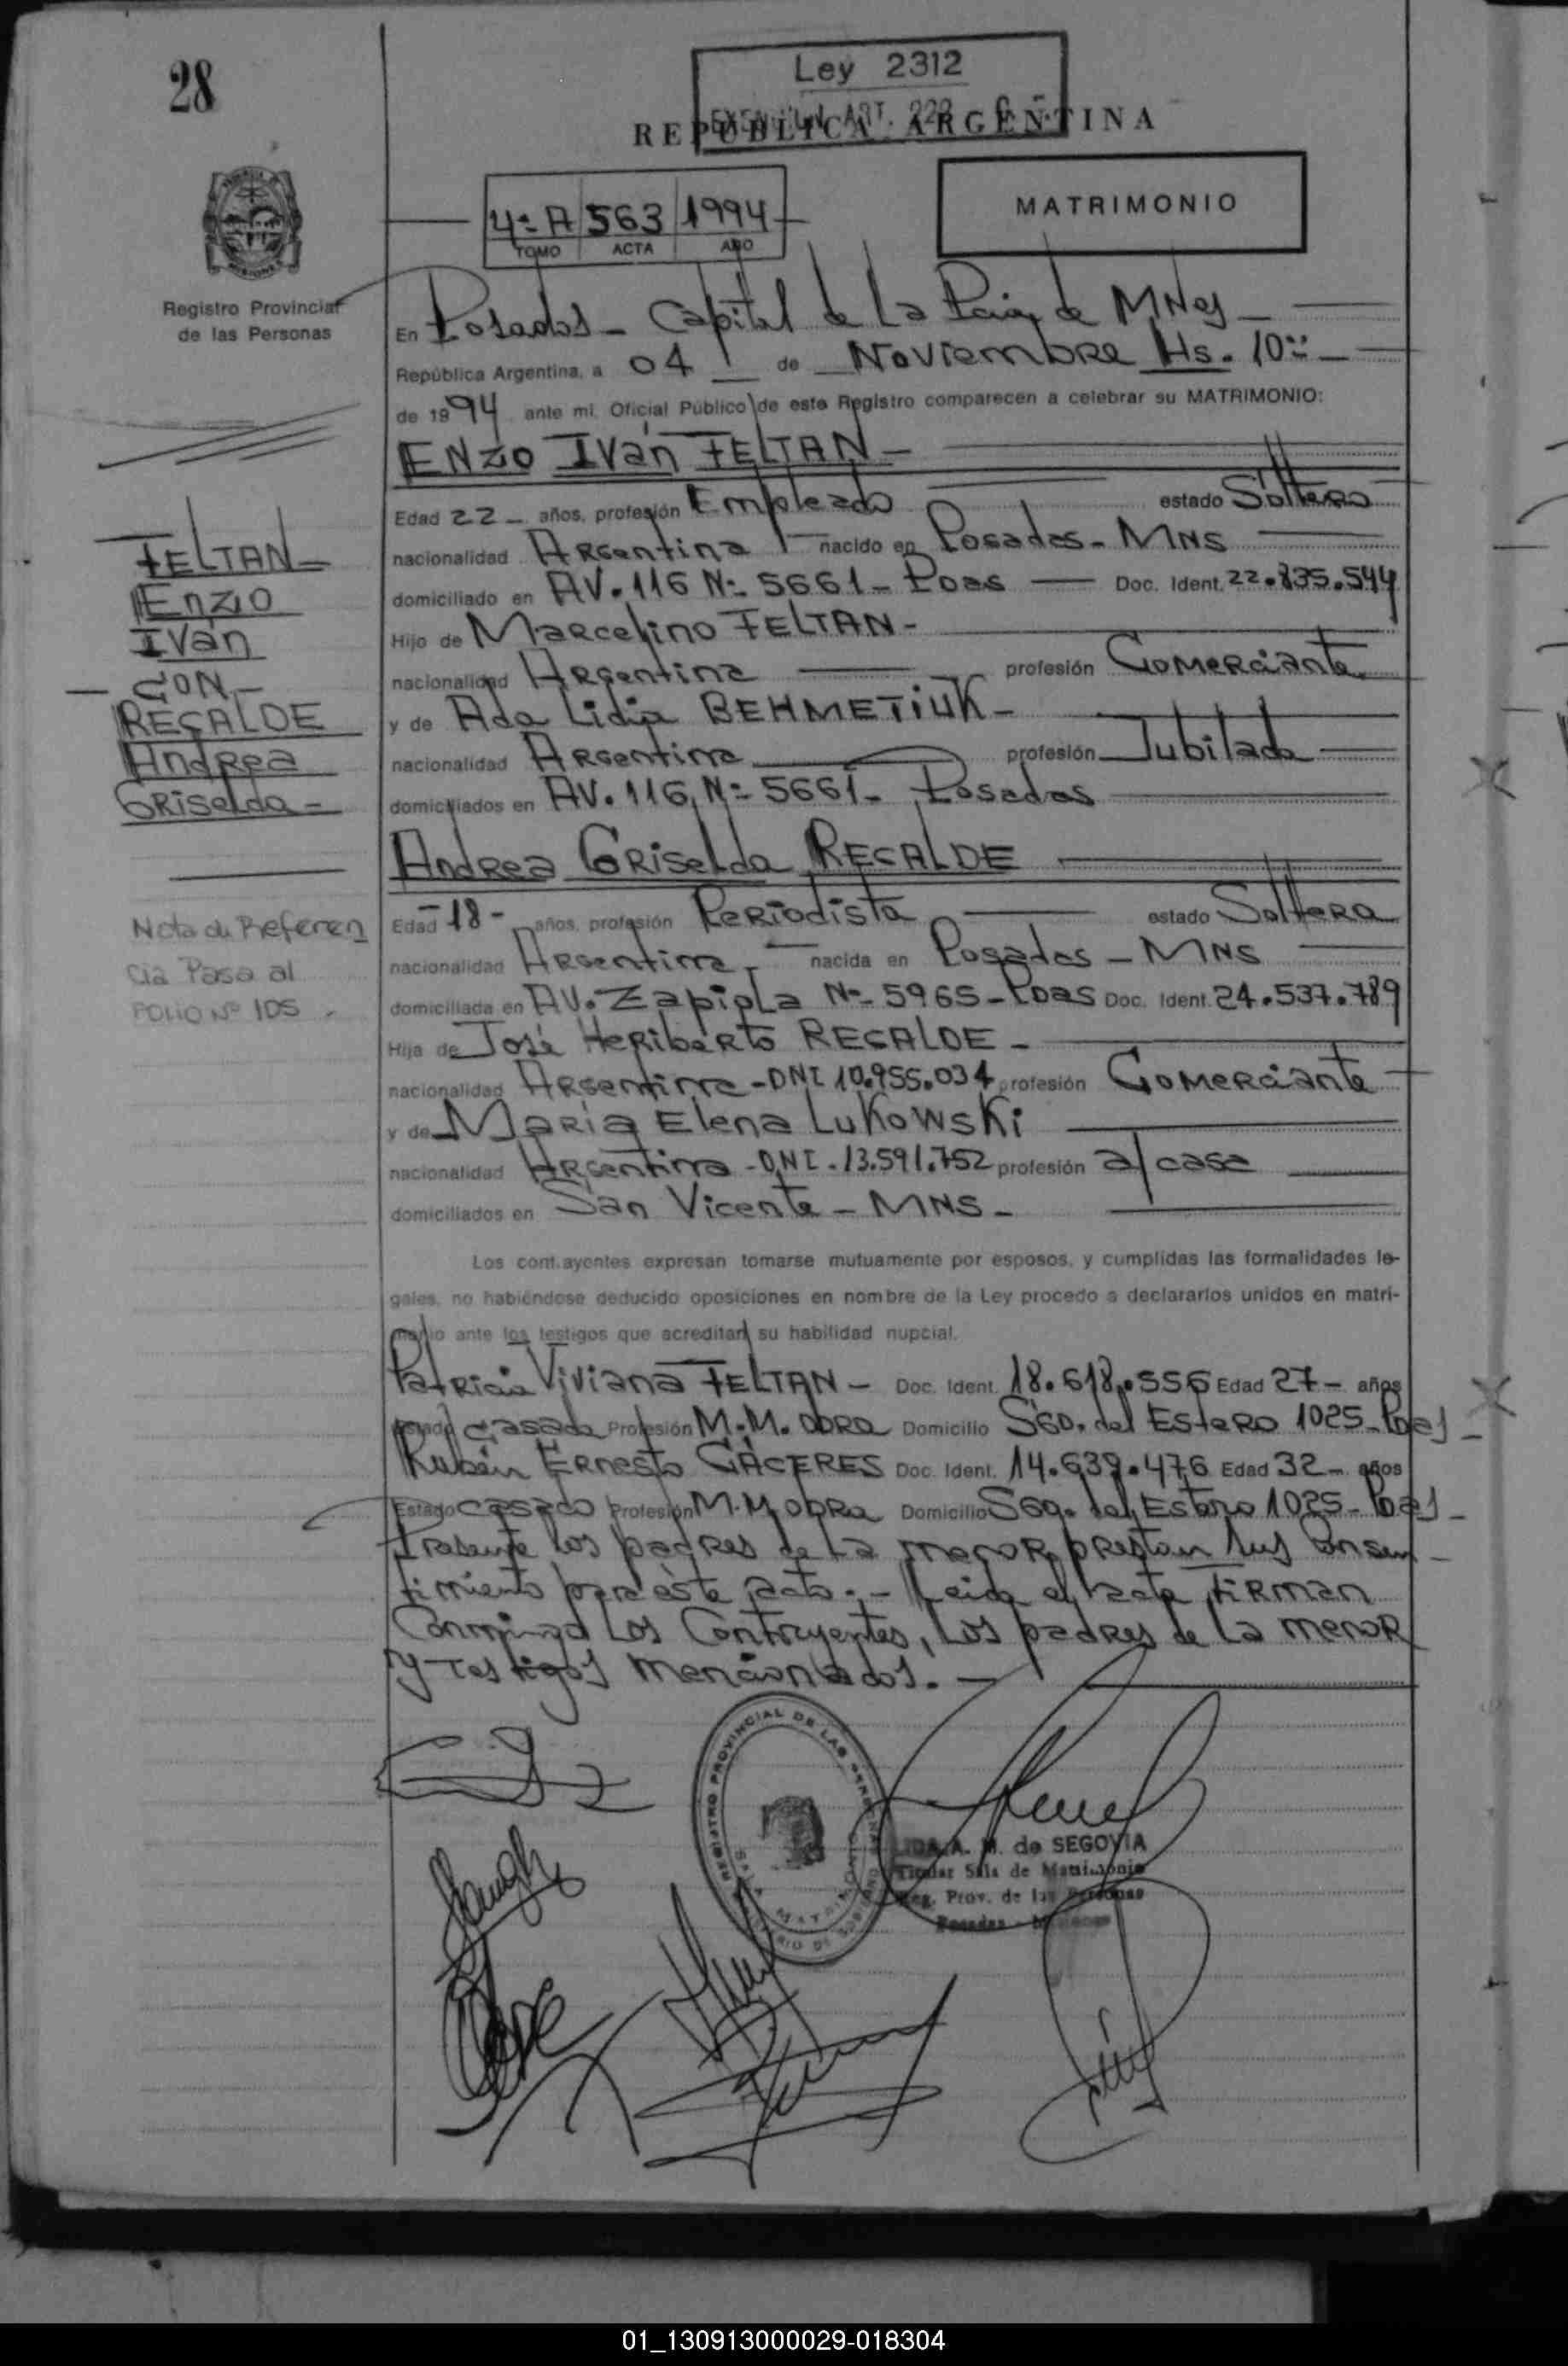 28
Ley 2312
REPUBLICA ARGENTINA
4º A 563 1994
TOMO ACTA AÑO
MATRIMONIO
Registro Provincial
de las Personas
En Posadas - Capital de La Pcia. de MNes -
República Argentina, a 04 de Noviembre Hs. 10:00 -
de 1994 ante mí, Oficial Público de este Registro comparecen a celebrar su MATRIMONIO:
ENZIO IVán FELTAN -
Edad 22 - años, profesión Empleado estado Soltero
nacionalidad Argentina nacido en Posadas - MNS
domiciliado en AV. 116 Nº 5661 - Pdas Doc. Ident. 22.835.544
Hijo de Marcelino FELTAN -
nacionalidad Argentina profesión Comerciante
y de Ada Lidia BEHMETIUK -
nacionalidad Argentina profesión Jubilada
domiciliados en AV. 116 Nº 5661 - Posadas
Andrea Griselda RECALDE
Edad -18- años, profesión Periodista estado Soltera
nacionalidad Argentina - nacida en Posadas - MNS
domiciliada en AV. Zapiola Nº 5965 - Pdas Doc. Ident. 24.537.789
Hija de José Heriberto RECALDE -
nacionalidad Argentina - DNI 10.955.034 profesión Comerciante
y de María Elena LuKowsKi
nacionalidad Argentina - DNI - 13.591.752 profesión a/casa
domiciliados en San Vicente - MNS -
Los contrayentes expresan tomarse mutuamente por esposos, y cumplidas las formalidades le-
gales, no habiéndose deducido oposiciones en nombre de la Ley procedo a declararlos unidos en matri-
monio ante los testigos que acreditan su habilidad nupcial.
Patricia Viviana FELTAN - Doc. Ident. 18.618.556 Edad 27 - años
Estado Casada Profesión M.M. Obra Domicilio Sgo. del Estero 1025 - Pdas -
Rubén Ernesto CÁCERES Doc. Ident. 14.639.476 Edad 32 - años
Estado Casado Profesión M.M. Obra Domicilio Sgo. del Estero 1025 - Pdas -
Presente los padres de la menor, prestan sus Consen-
timiento para éste acto. - Leida el acta, FIRMAN
Conmigo Los Contrayentes, Los padres de La menor
y Testigos mencionados. -
FELTAN -
Enzio
IVán
- CON -
RECALDE
Andrea
Griselda -
Nota de Referen
cia Pasa al
FOLIO Nº 105 -
REGISTRO PROVINCIAL DE LAS PERSONAS
SALA MATRIMONIO
LIDA A. M. de SEGOVIA
Titular Sala de Matrimonio
Reg. Prov. de las Personas
Posadas - Misiones
01_130913000029-018304